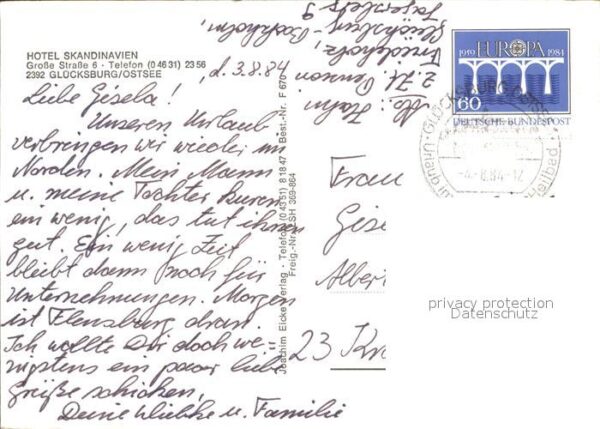 HOTEL SKANDINAVIEN
Große Straße 6 - Telefon (0 46 31) 23 56
2392 GLÜCKSBURG/OSTSEE
d. 3.8.84
Liebe Gisela!
Unseren Urlaub
verbringen wir wieder im
Norden. Mein Mann
u. meine Tochter kuren
ein wenig, das tut ihnen
gut. Ein wenig Zeit
bleibt dann noch für
Unternehmungen. Morgen
ist Flensburg dran.
Ich wollte Dir doch we-
nigstens ein paar liebe
Grüße schicken,
Deine Wiebke u. Familie
Abs: Hahn
z. Zt. Pension
Friedholz,
Glücksburg-
Joachim Eicke Verlag - Telefon (0 43 51) 8 18 47 - Best.-Nr. F 670
Freig.-Nr. SH 369-864
1959 EUROPA 1984
60
DEUTSCHE BUNDESPOST
GLÜCKSBURG, OSTSEE
-4.8.84-12
Frau
Gise
Alber
23 K
privacy protection
Datenschutz